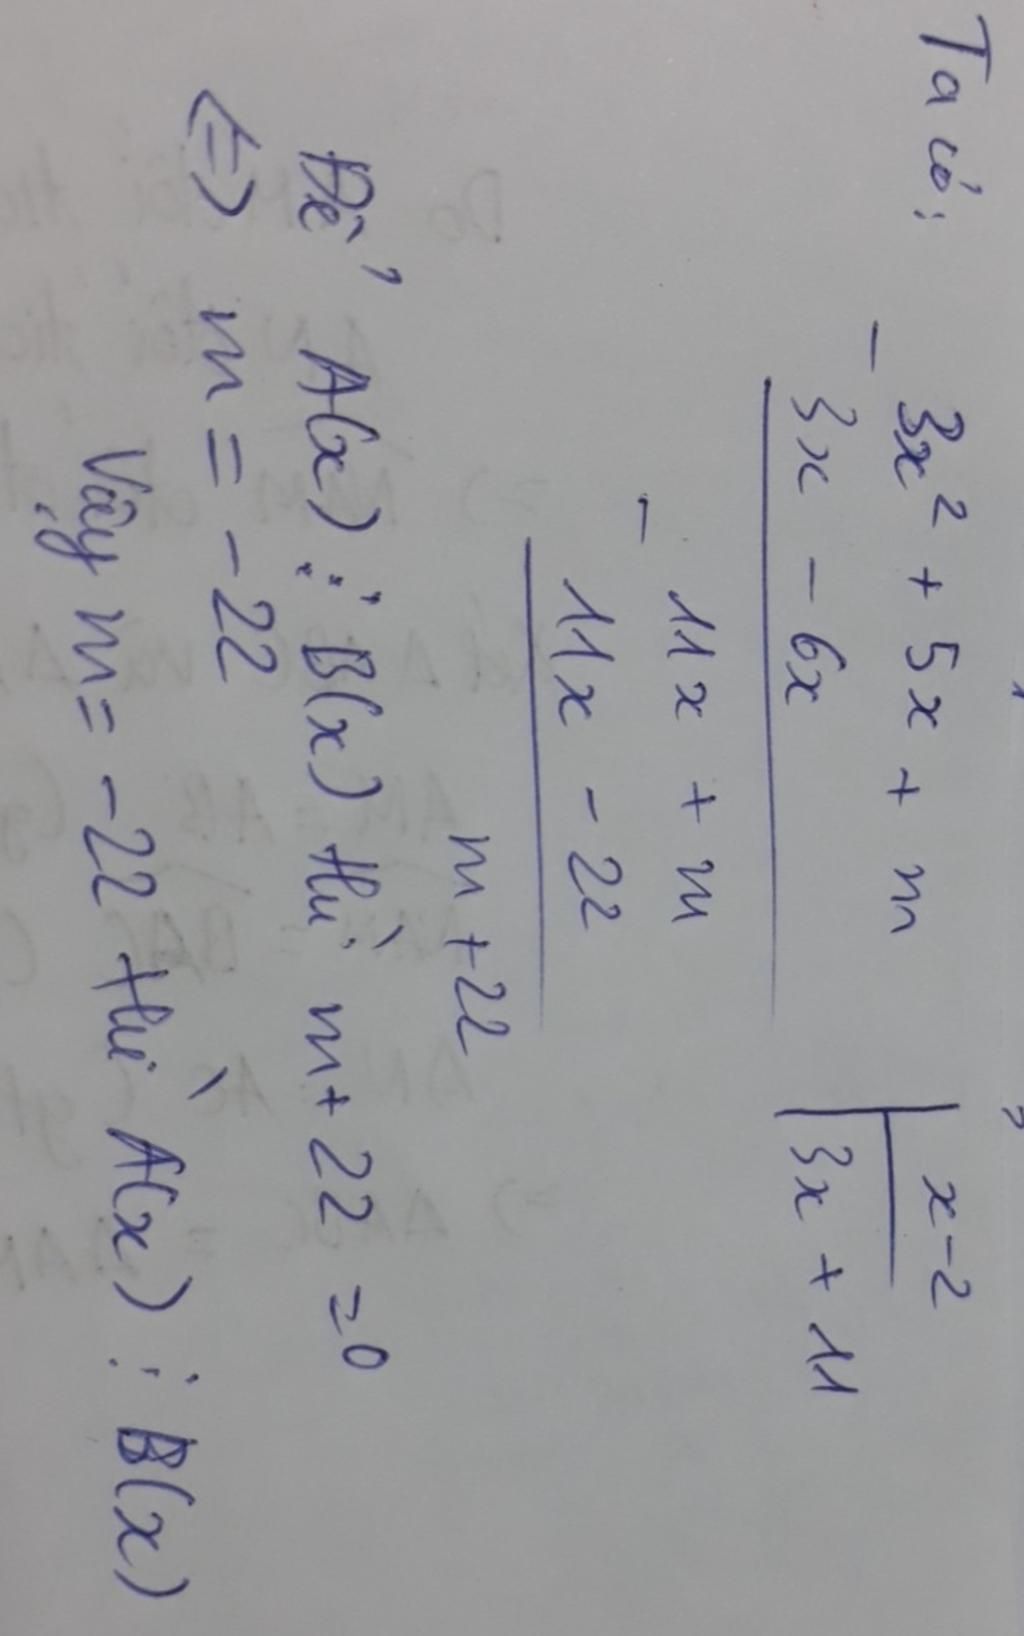 Ta có:
3x² + 5x + m | x-2
- 3x - 6x | 3x + 11
11x + m
- 11x - 22
m + 22
Để A(x) ⋮ B(x) thì m + 22 = 0
<=> m = -22
Vậy m = -22 thì A(x) ⋮ B(x)